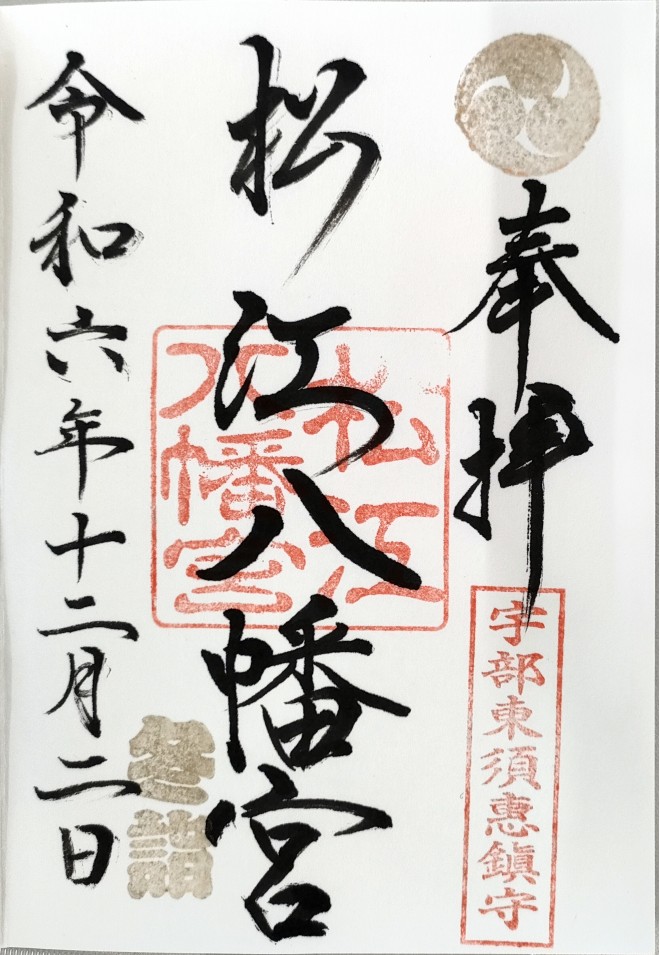 奉拝
宇部東須恵鎮守
松江八幡宮
松江
八幡宮
冬詣
令和六年十二月二日